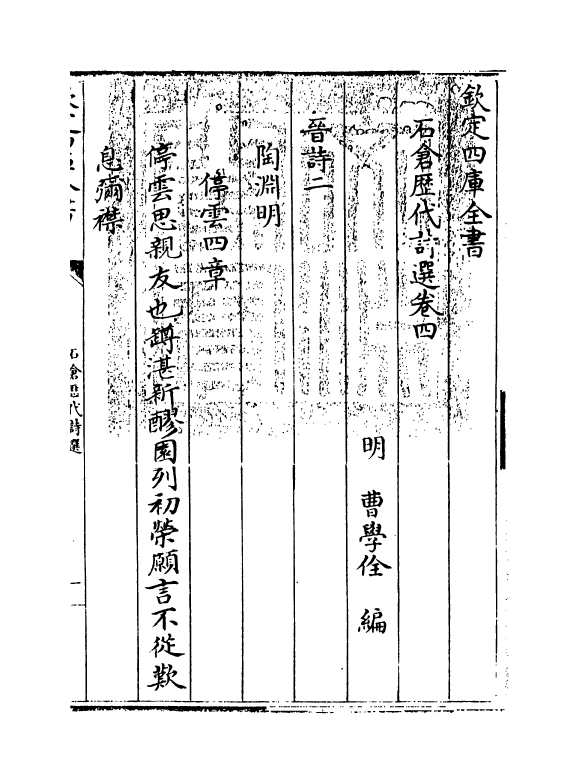 欽定四庫全書
石倉歴代詩選卷四
明 曹學佺 編
晉詩二
陶淵明
停雲四章
停雲思親友也罇湛新醪園列初榮願言不從歎
息彌襟
石倉歴代詩選
一